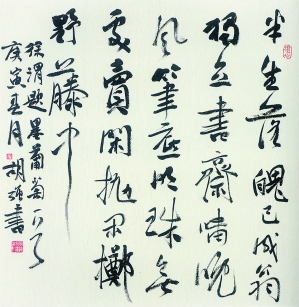 半生落魄已成翁
獨立書齋嘯晚
風筆底明珠無
處賣閑抛閑擲
野藤中
徐渭題墨葡萄
庚寅春月胡書